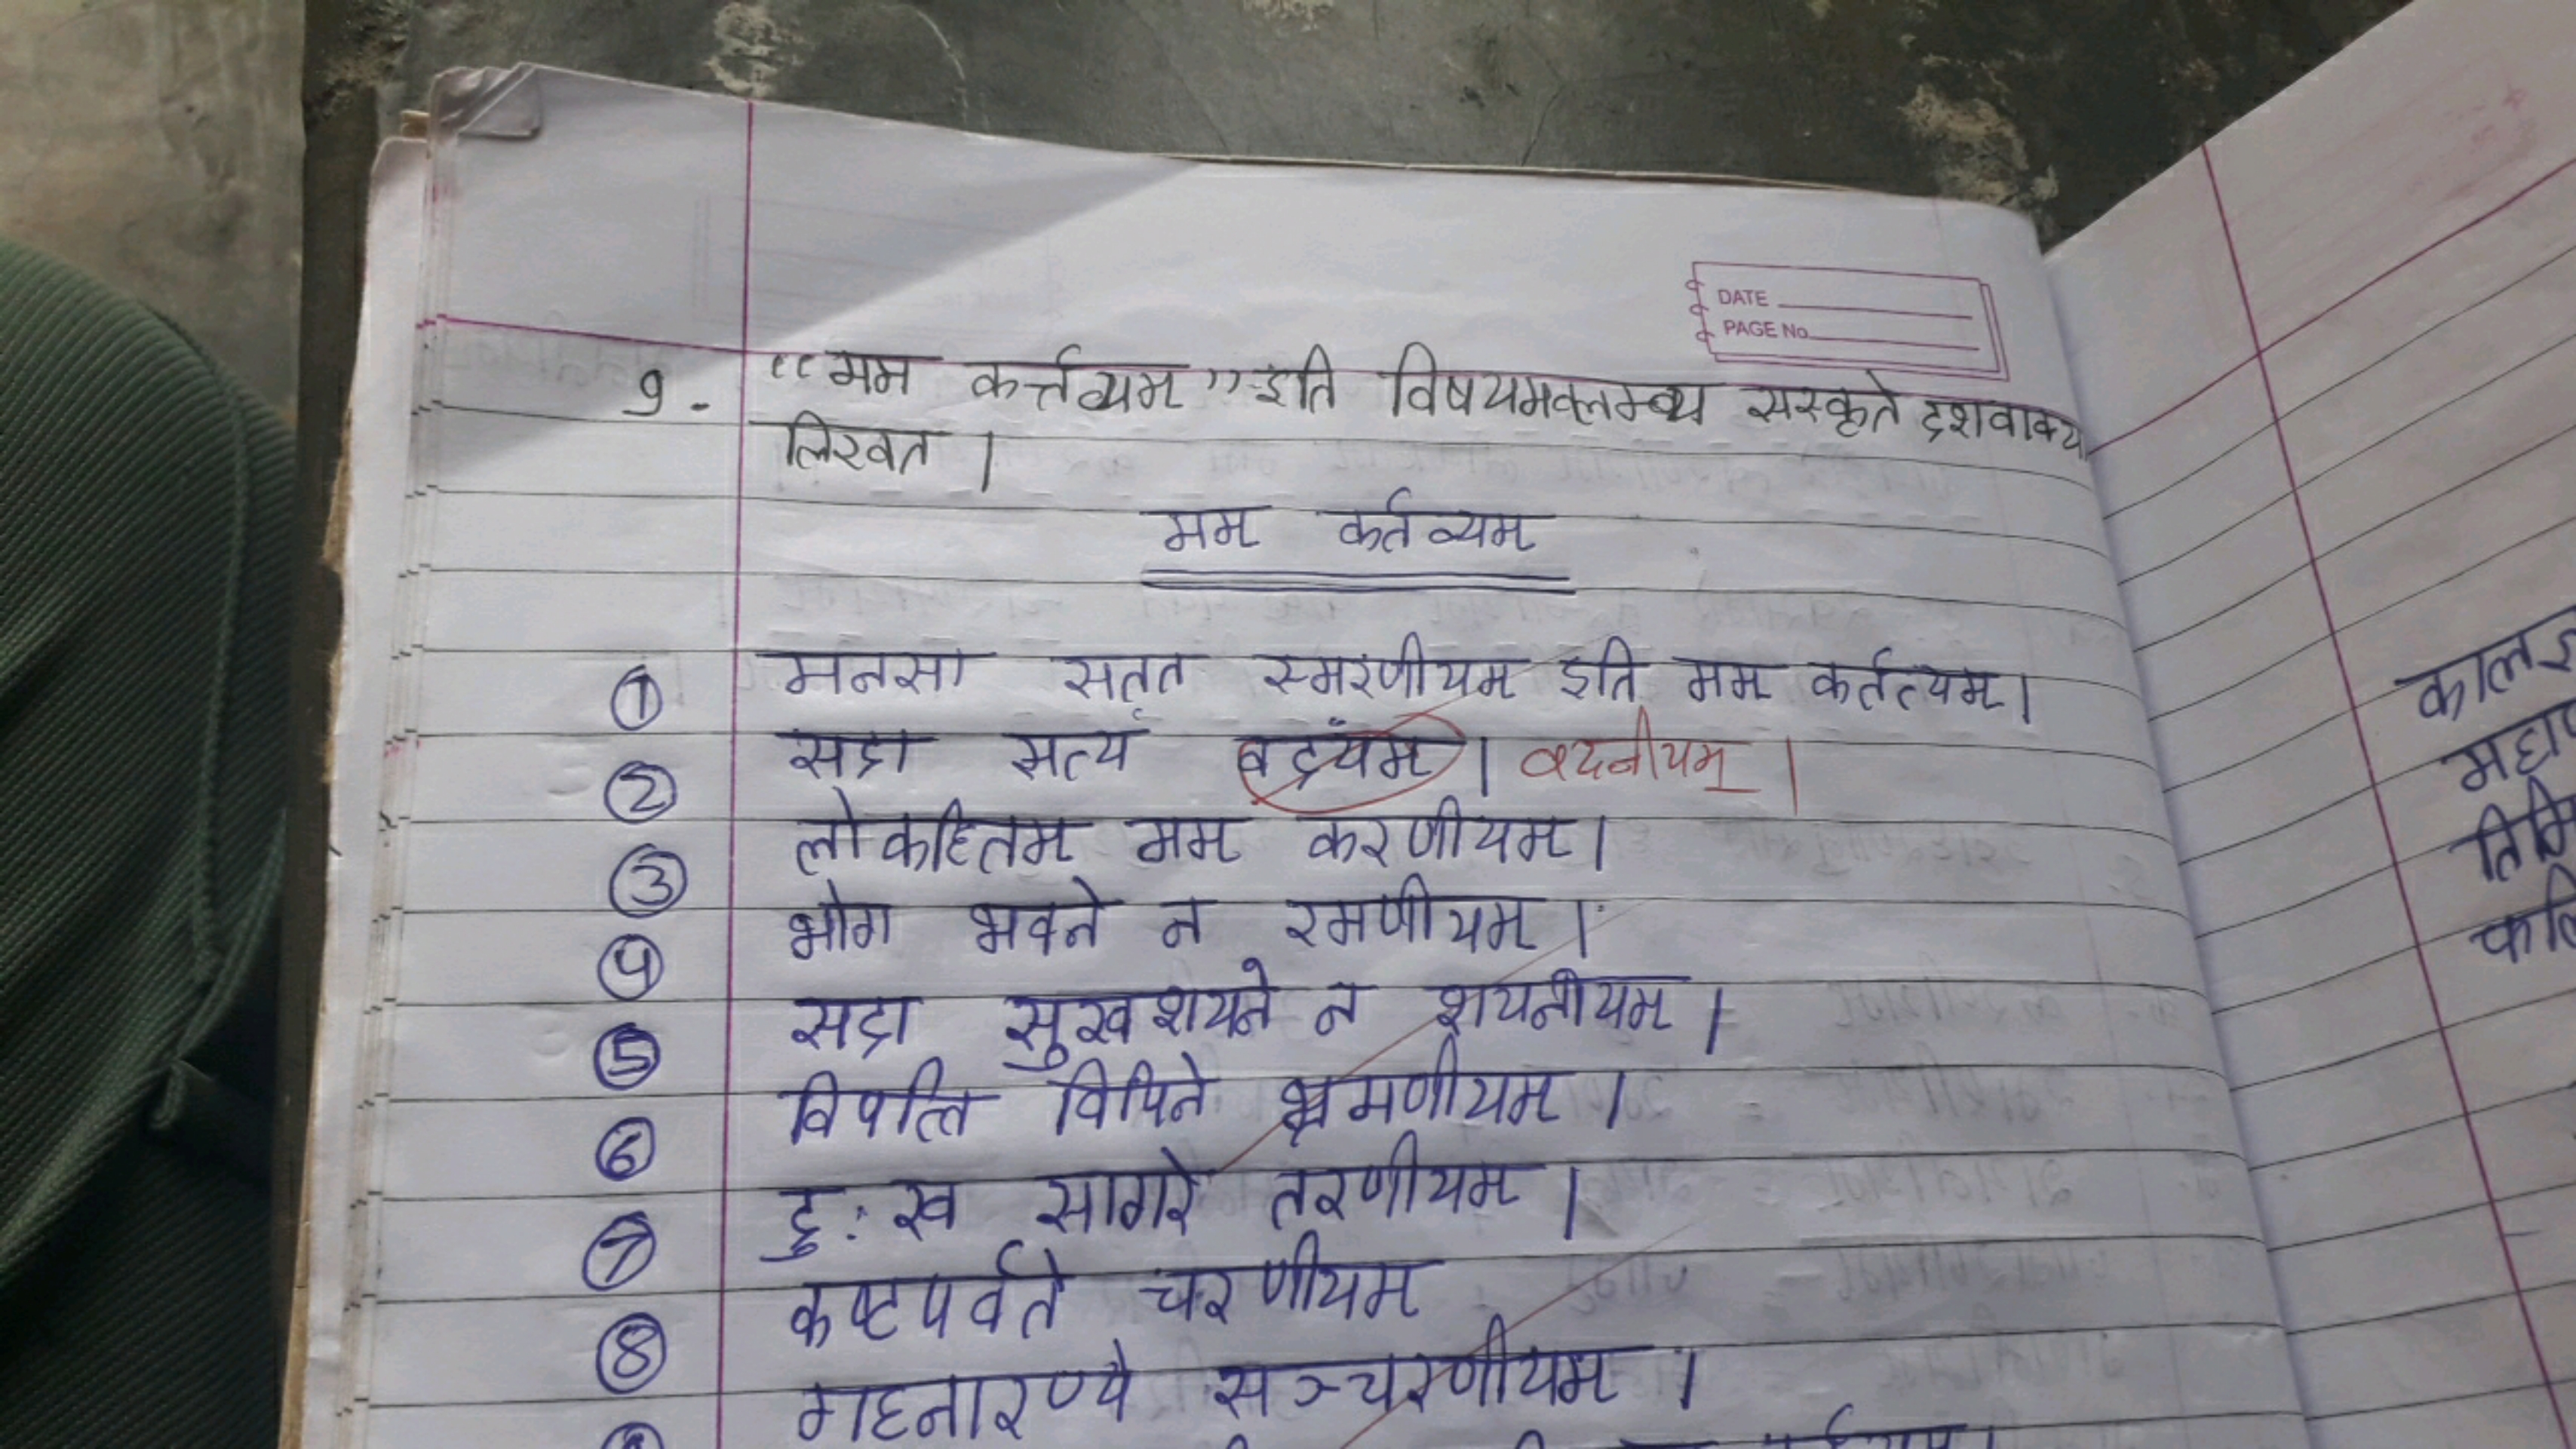 DATE
PAGE No.
9. “मम कर्त्तव्यम” इति विषयमवलम्ब्य संस्कृते दशवाक्य
लिखत ।
मम कर्तव्यम
① मनसा सतत स्मरणीयम इति मम कर्तत्यम।
② सदा सत्यं वदयंम । वदनीयम् ।
③ लोकहितम मम करणीयम।
④ भोग भवने न रमणीयम।
⑤ सदा सुखशयने न शयनीयम।
⑥ विपत्ति विपिने भ्रमणीयम ।
⑦ दु:ख सागरे तरणीयम ।
⑧ कष्टपर्वते चरणीयम
गहनारण्ये सञ्चरणीयम ।
काल
महा